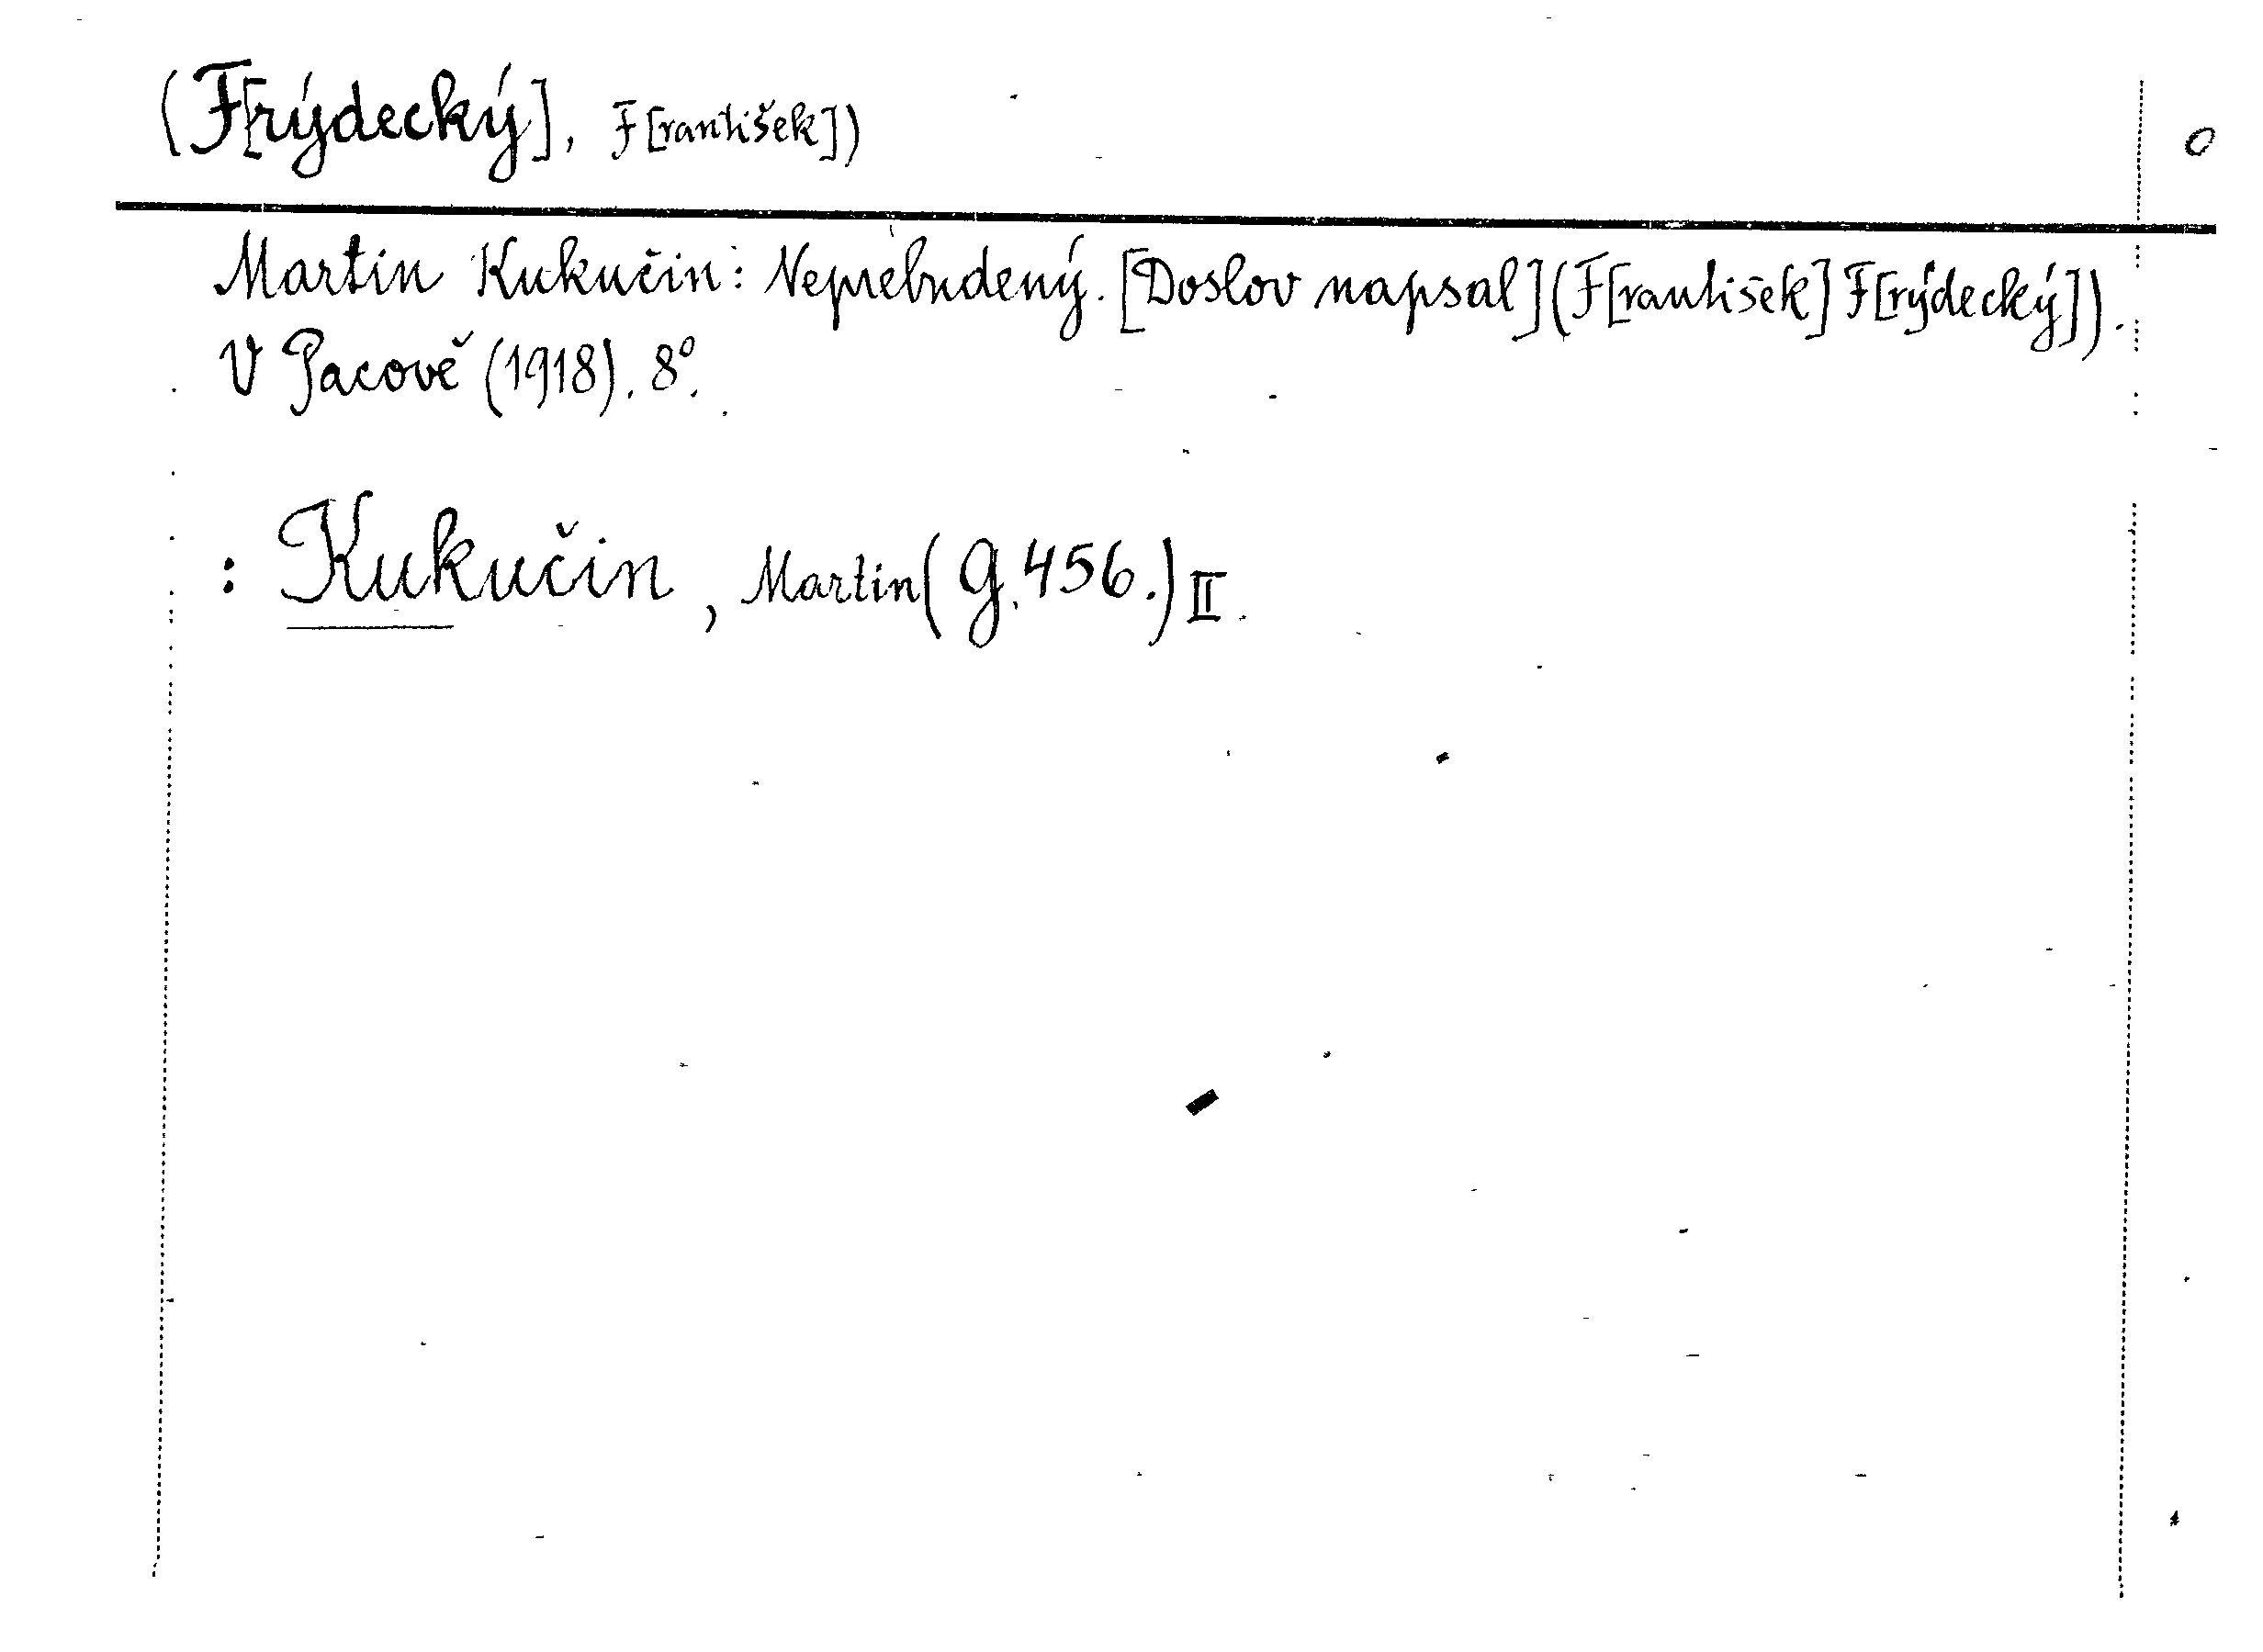 (F[rýdecký], F[rantišek]) O
Martin Kukučin: Neprebudený. [Doslov napsal] (F[rantišek] F[rýdecký]).
V Pacově (1918). 8°.
: Kukučin, Martin (g. 456.) II.